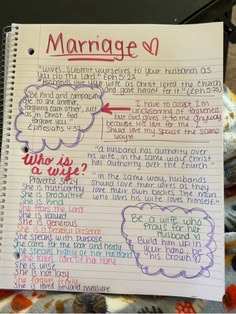 Marriage ♡
"Wives, submit yourselves to your husband as
you do the Lord." Eph 5:22
"Husbands love your wife as Christ loved the Church
and gave himself for it" (Eph 5:25)
"Be kind and compassionate
to one another,
forgiving each other, just
as in Christ, God
forgave you."
Ephesians 4:32
I have to adapt. I'm
undeserving of forgiveness
but God gives it to me anyway
because His love for me. I
should give my spouse the same
Who is
a wife?
Proverbs 31
She is trustworthy
She is productive
She is kind
She fears the Lord
She is valued
She is generous
She speaks with purpose
She cares for the poor and needy
She speaks highly of her husband
She takes care of her home
She is wise
She is not lazy
She is forgiving
She respects her husband
"a husband has authority over
his wife, in the same way Christ
has authority over the church"
"In the same way, husbands
should love their wives as they
love their own bodies. The man
who loves his wife loves himself."
Be a wife who
prays for her
husband!
Build him up in
your home, be
his crown ♡